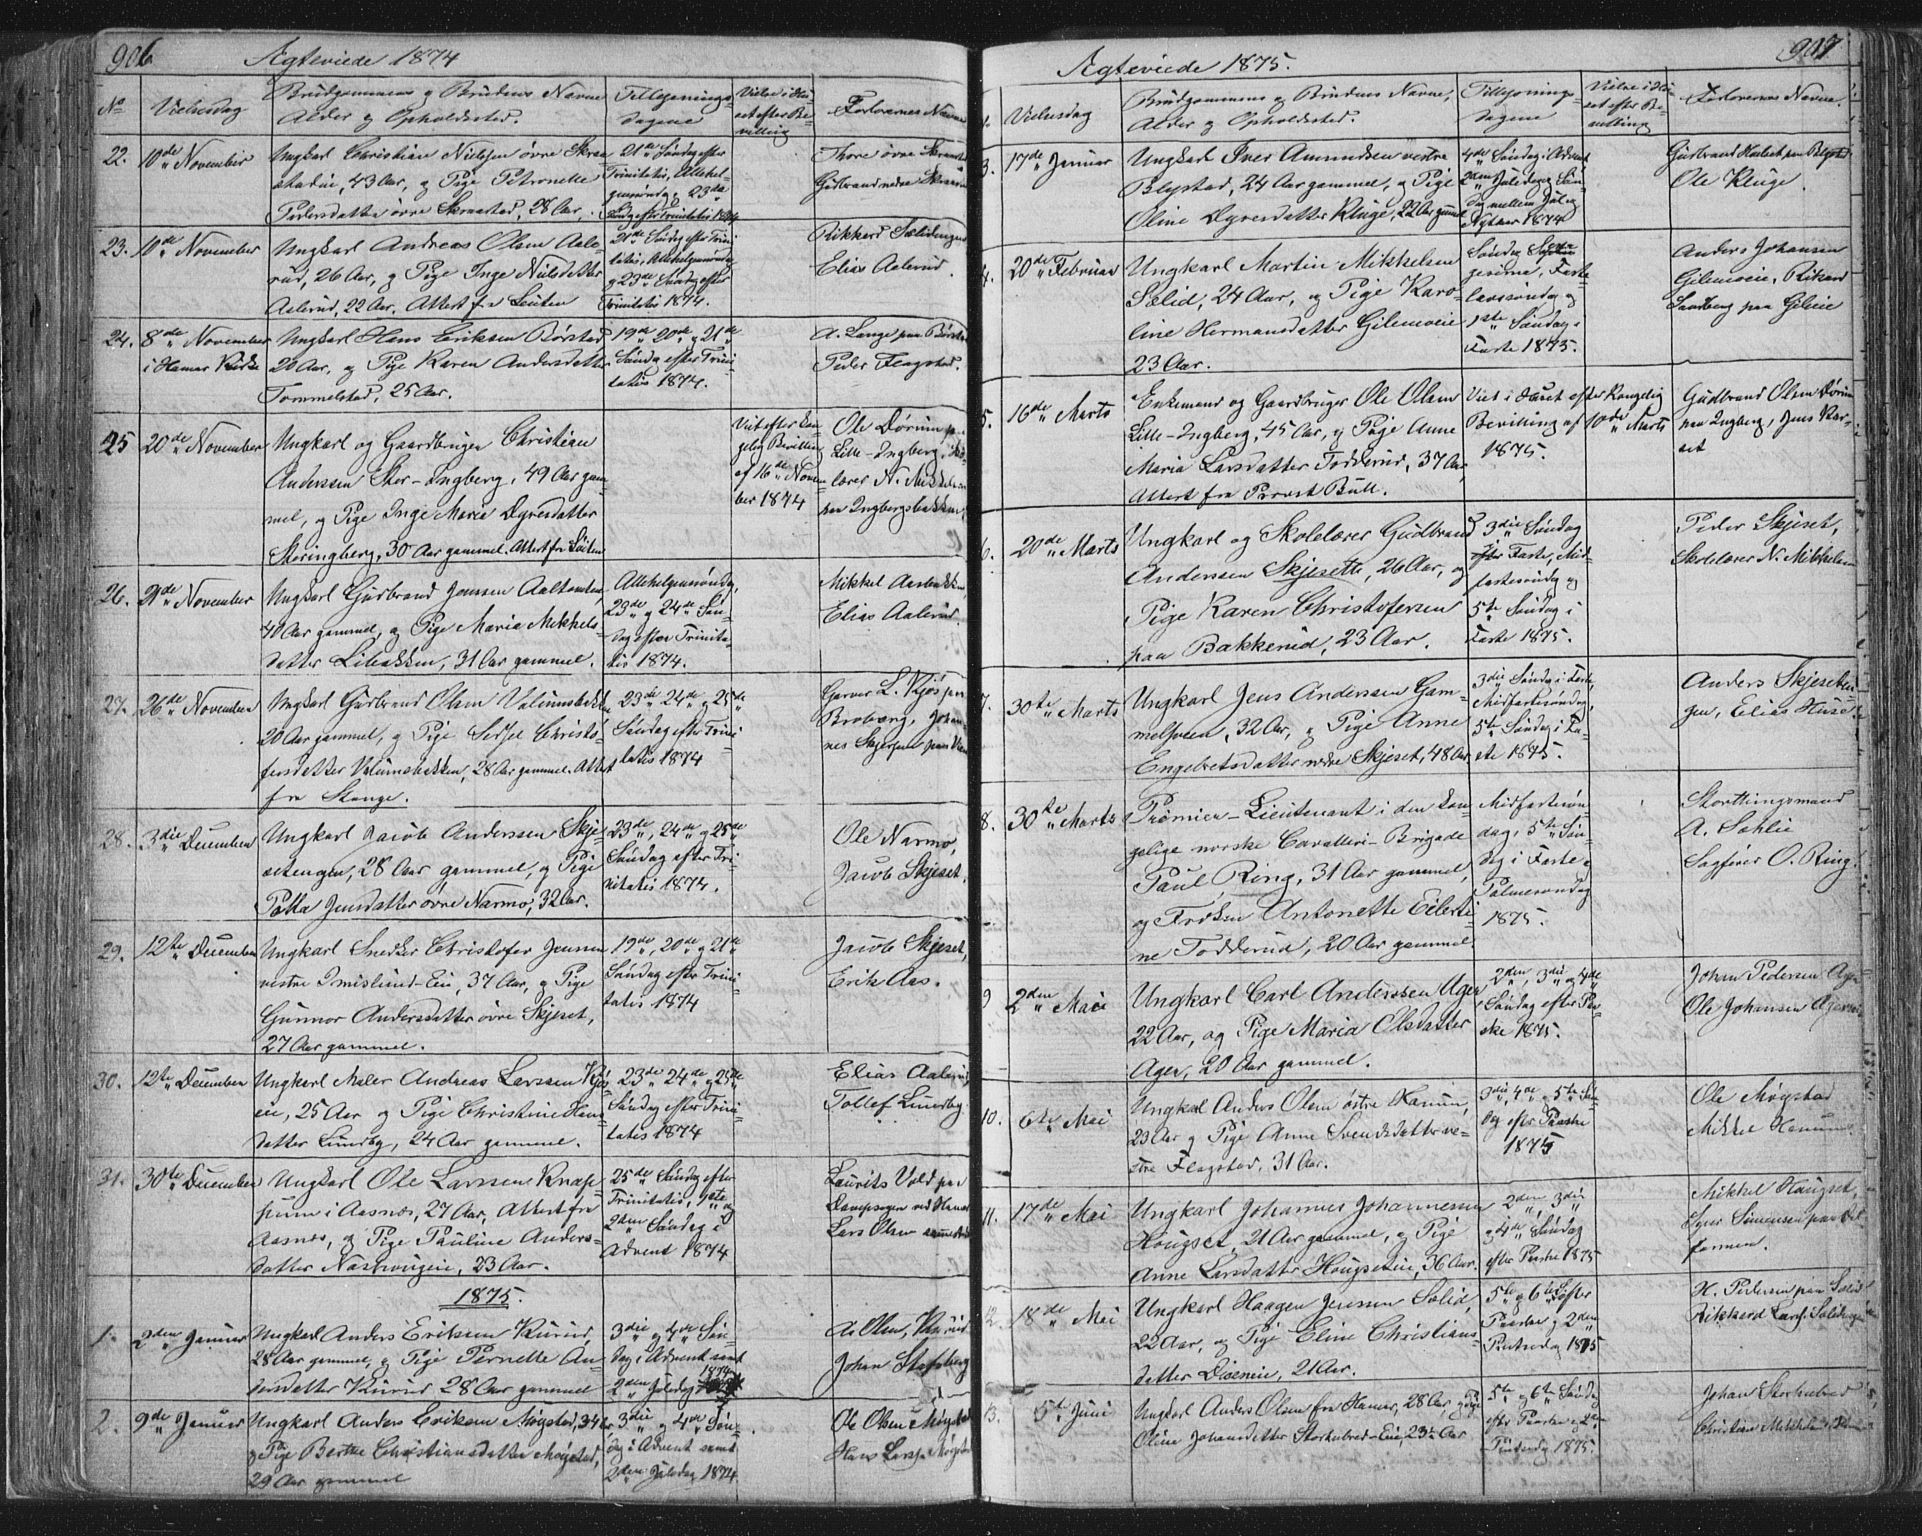 906
Ægteviede 1874
No
Vielsesdag
Brudgommens og Brudens Navne
Alder og Opholdssted.
Tillysnings-
dagene
Vielse i Hu-
set efter Be-
villing
Forlovernes Navne
22. 10de November
Ungkarl Christian Nielsen øvre Skraa-
stadeie, 43 Aar, og Pige Petronelle
Pedersdatter øvre Skraastad, 28 Aar.
21de Søndag efter
Trinitatis, Allehel-
gensøndag, 23de
Søndag efter Trinitatis 1874
Thore øvre Skraastad
Gudbrand nedre Skraastad
23. 10de November
Ungkarl Andreas Olsen Aale-
rud, 26 Aar, og Pige Inge Nilsdatter
Aalerud, 22 Aar. Attest fra Løiten
21de Søndag efter Trini-
tatis, Allehelgensøndag
og 23de Søndag efter
Trinitatis 1874.
Rikkard Sælidengen
Elias Aalerud.
24. 8de November
i Hamar Kirke
Ungkarl Hans Eriksen Børstad
20 Aar, og Pige Karen Andersdatter
Tommelstad, 25 Aar.
19de 20de og 21de
Søndag efter Trini-
tatis 1874.
A. Lange paa Børstad
Peder Flagstad.
25 20de November
Ungkarl og Gaardbruger Christian
Anderssen Stor-Ingberg, 49 Aar gam-
mel, og Pige Inge Marie Dyresdatter
Storingberg, 30 Aar gammel. Attest fra Løiten
Viet efter Kon-
gelig Bevilling
af 16de Novem-
ber 1874
Ole Dørum paa
Lille-Ingberg, Sko-
lelærer N. Mikkelsen
paa Ingbergsbakken
26. 21de November
Ungkarl Gudbrand Jenssen Aaltomten,
40 Aar gammel, og Pige Marie Mikkels-
datter Libakken, 31 Aar gammel.
Allehelgensøndag,
23de og 24de Søn-
dag efter Trinita-
tis 1874.
Mikkel Aasbakken
Elias Aalerud
27. 26de November
Ungkarl Gudbrand Olsen Valumsbakken
20 Aar gammel, og Pige Sidsel Christo-
fersdatter Valumsbakken, 28 Aar gammel. Attest
fra Stange.
23de 24de og 25de
Søndag efter Trini-
tatis 1874
Garver L. Kjøs paa
Broberg, Johan-
nes Skjerpen paa
28. 3die December
Ungkarl Jacob Anderssen Skje-
setengen, 28 Aar gammel, og Pige
Petra Jensdatter øvre Narmo, 32 Aar.
23de, 24de og 25de
Søndag efter Tri-
nitatis 1874.
Ole Narmo,
Jacob Skjeset.
29. 12te December
Ungkarl Snedker Christofer Jensen
vestre Imislund-Eie, 37 Aar, og Pige
Gunnor Andersdatter øvre Skjeset,
27 Aar gammel.
19de, 20de og 21de
Søndag efter Trini-
tatis 1874
Jacob Skjeset,
Erik Aas.
30. 12te December
Ungkarl Maler Andreas Larssen Kjøs
eie, 25 Aar og Pige Christine Hans-
datter Lundby, 24 Aar gammel.
23de 24de og 25de
Søndag efter Trini-
tatis 1874
Elias Aalerud
Tollef Lundby
31. 30te December
Ungkarl Ole Larssen Knap-
pum i Aasnes, 27 Aar, Attest fra
Aasnes, og Pige Pauline Anders-
datter Næshougeie, 23 Aar.
25de Søndag efter
Trinitatis, 1ste og
2den Søndag i
Advent 1874
Laurits Vold paa
Dampsagen ved Hamar
Lars Olsen sammesteds
1875.
1. 2den Januar
Ungkarl Anders Eriksen Kurud,
28 Aar gammel, og Pige Pernelle An-
dersdatter Kurud 28 Aar gammel
3die og 4de Søn-
dag i Advent samt
2den Juledag 1874
A. Olsen, Kurud
Johan Stafsberg
2. 9de Januar
Ungkarl Anders Eriksen Møistad, 34 Aar,
og Pige Berthe Christiansdatter Møistad,
29 Aar gammel
3die og 4de Søn-
dag i Advent samt
2den Juledag 1874.
Ole Olsen Møistad
Hans Larsen Møistad
907
Ægteviede 1875.
Vielsesdag
Brudgommens og Brudens Navne,
Alder og Opholdssted.
Tillysnings-
dagene
Vielse i Hu-
set efter Be-
villing
Forlovernes Navne.
3. 17de Januar
Ungkarl Iver Amundsen vestre
Blystad, 24 Aar gammel, og Pige
Oline Dyresdatter Kluge, 22 Aar gammel
4de Søndag i Advent
2den Juledag, Søn-
dag mellem Jul og
Nytaar 1874
Gudbrand paa Blystad
Ole Kluge.
4. 20de Februar
Ungkarl Martin Mikkelsen
Sælid, 24 Aar, og Pige Karo-
line Hermansdatter Gilemoeie
23 Aar.
Søndag Septua-
gesima, Faste-
lavssøndag og
1ste Søndag i
Faste 1875.
Anders Johansen
Gilemoeie, Rikard
Sandberg paa Gileeie
5. 16de Marts
Enkemand og Gaardbruger Ole Olsen
Lille-Ingberg, 45 Aar, og Pige Anne
Maria Larsdatter Todderud, 37 Aar,
Attest fra Provst Bull.
Viet i Huset efter Kongelig
Bevilling af 10de Marts
1875.
Gudbrand Olsen Dørum
paa Ingberg, Jens Kar-
set
6. 20de Marts
Ungkarl og Skolelærer Gudbrand
Anderssen Skjesette, 26 Aar, og
Pige Karen Christofersen
paa Bakkerud, 23 Aar.
3die Søndag
i Faste, Mid-
fastesøndag og
5te Søndag i
Faste 1875.
Peder Skjeset,
Skolelærer N. Mikkelsen
7. 30te Marts
Ungkarl Jens Anderssen Gam-
melsveen, 32 Aar, og Pige Anne
Engebretsdatter nedre Skjeset, 48 Aar
3die Søndag i Faste,
Midfastesøndag,
5te Søndag i Fa-
ste 1875.
Anders Skjeseten-
gen, Elias Huse
8. 30te Marts
Premier-Lieutenant i den kon-
gelige norske Cavalleri-Brigade
Paul Ring, 31 Aar gammel,
og Frøken Antonette Eilerti-
ne Todderud, 20 Aar gammel
Midfastesøn-
dag, 5te Søn-
dag i Faste og
Palmesøndag
1875.
Storthingsmand
A. Sæhlie
Sagfører O. Ring.
9 2den Mai
Ungkarl Carl Anderssen Ager,
22 Aar, og Pige Maria Olsdatter
Ager, 20 Aar gammel.
2den, 3die og 4de
Søndag efter Paa-
ske 1875.
Johan Pedersen Ager
Ole Johansen Ager
10. 6te Mai
Ungkarl Anders Olsen østre Hanum,
23 Aar og Pige Anne Svendsdatter ve-
stre Flagstad, 31 Aar.
3die, 4de og 5te Søn-
dag efter Paaske
1875
Ole Møistad
Mikkel Hanum
11. 17de Mai
Ungkarl Johannes Johannessen
Hougset, 21 Aar gammel, og Pige
Anne Larsdatter Hougseteie, 36 Aar.
2den, 3die
og 4de Søndag
efter Paaske 1875
Mikkel Hougset,
Syver Simensen paa
12. 18de Mai
Ungkarl Haagen Jenssen Sælid,
22 Aar, og Pige Eline Christians-
datter Diseneie, 21 Aar.
5te og 6te S. efter
Paaske og 2den
Pintsedag 1875
H. Pedersen paa Sælid
Rikkard Larss. Sælidengen
13. 5te Juni
Ungkarl Anders Olsen fra Hamar, 28 Aar, og Pige
Oline Johansdatter Storhubred-Eie, 23 1/2 Aar
5te og 6te Søndag
efter Paaske og 2den
Pintsedag 1875.
Johan Storhubred
Christian Mikkelsen